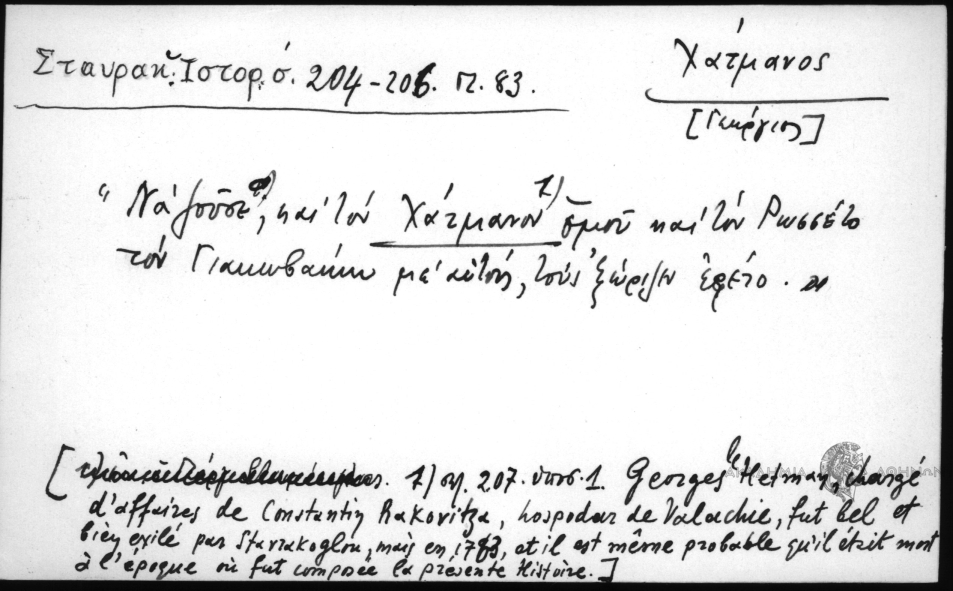 Σταυρακ: Ἱστορ. σ. 204-206. Π. 83.
Χάτμανος
[Γεώργιος]
"Νὰ ζοῦσε, καὶ τὸν Χάτμανον 1) ὁμοῦ καὶ τὸν Ρωσσέτο
τὸν Γιακωβάκη μὲ αὐτούς, τοὺς ἐξώριζεν ἐφέτο. "
[ 1) σημ. 207. ὑποσ. 1. Georges le Hetman, chargé
d'affaires de Constantin Rakovitza, hospodar de Valachie, fut bel et
bien exilé par Stavrakoglou, mais en 1763, et il est même probable qu'il était mort
à l'époque où fut composée la présente Histoire.]